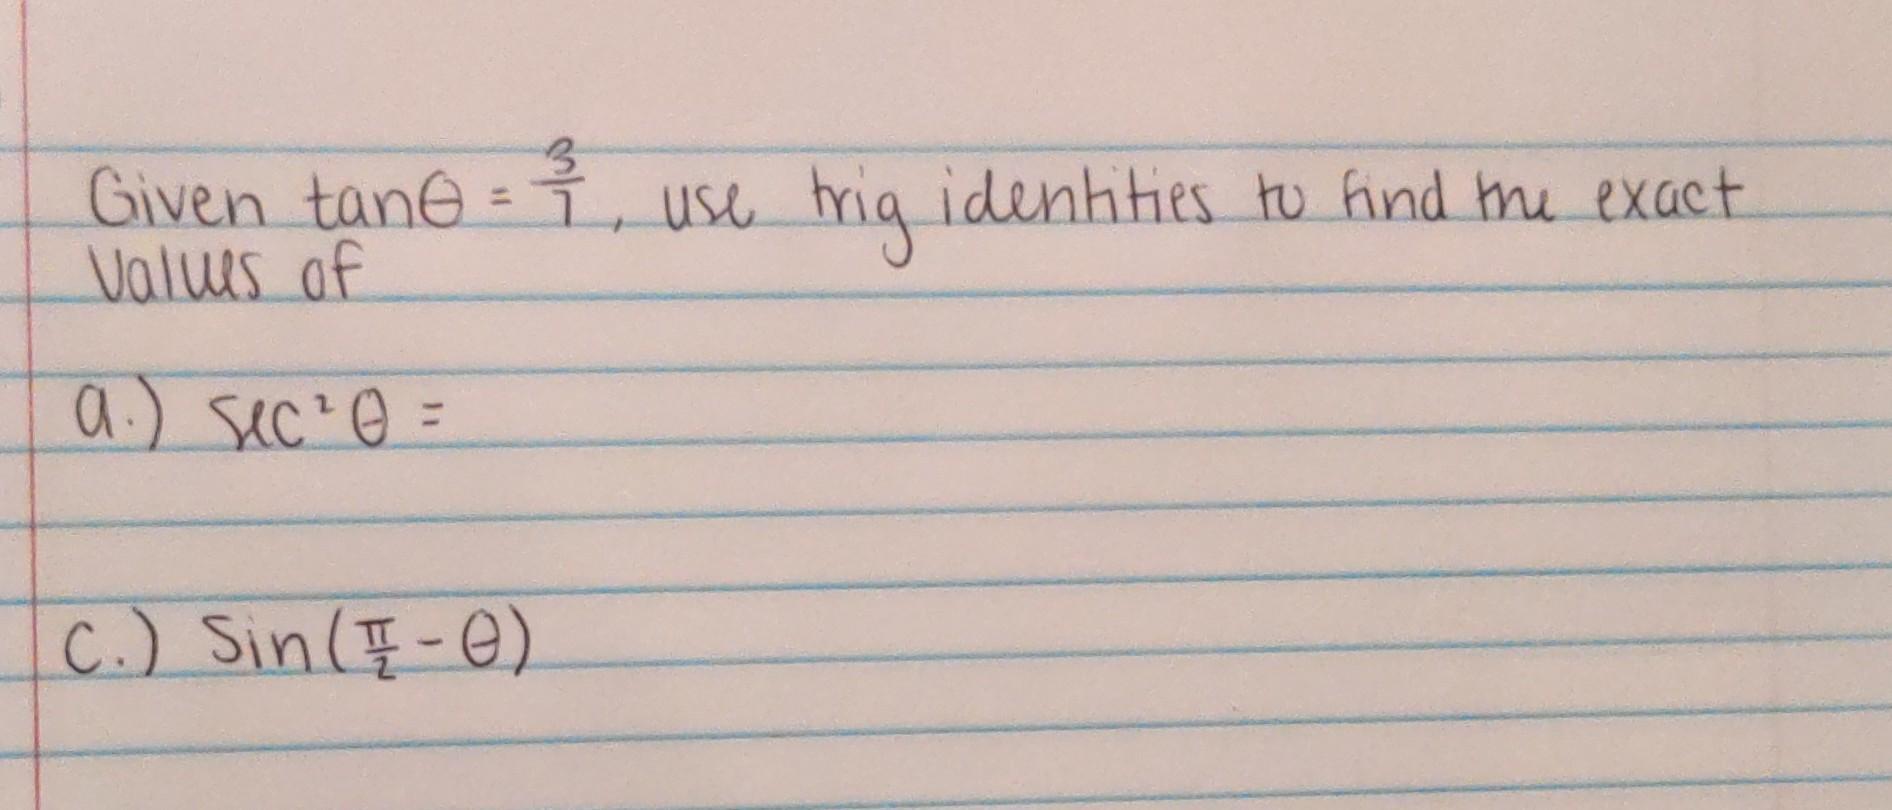 Given tanθ = 3/7, use trig identities to find the exact
values of
a.) sec²θ =
c.) Sin(π/2 - θ)